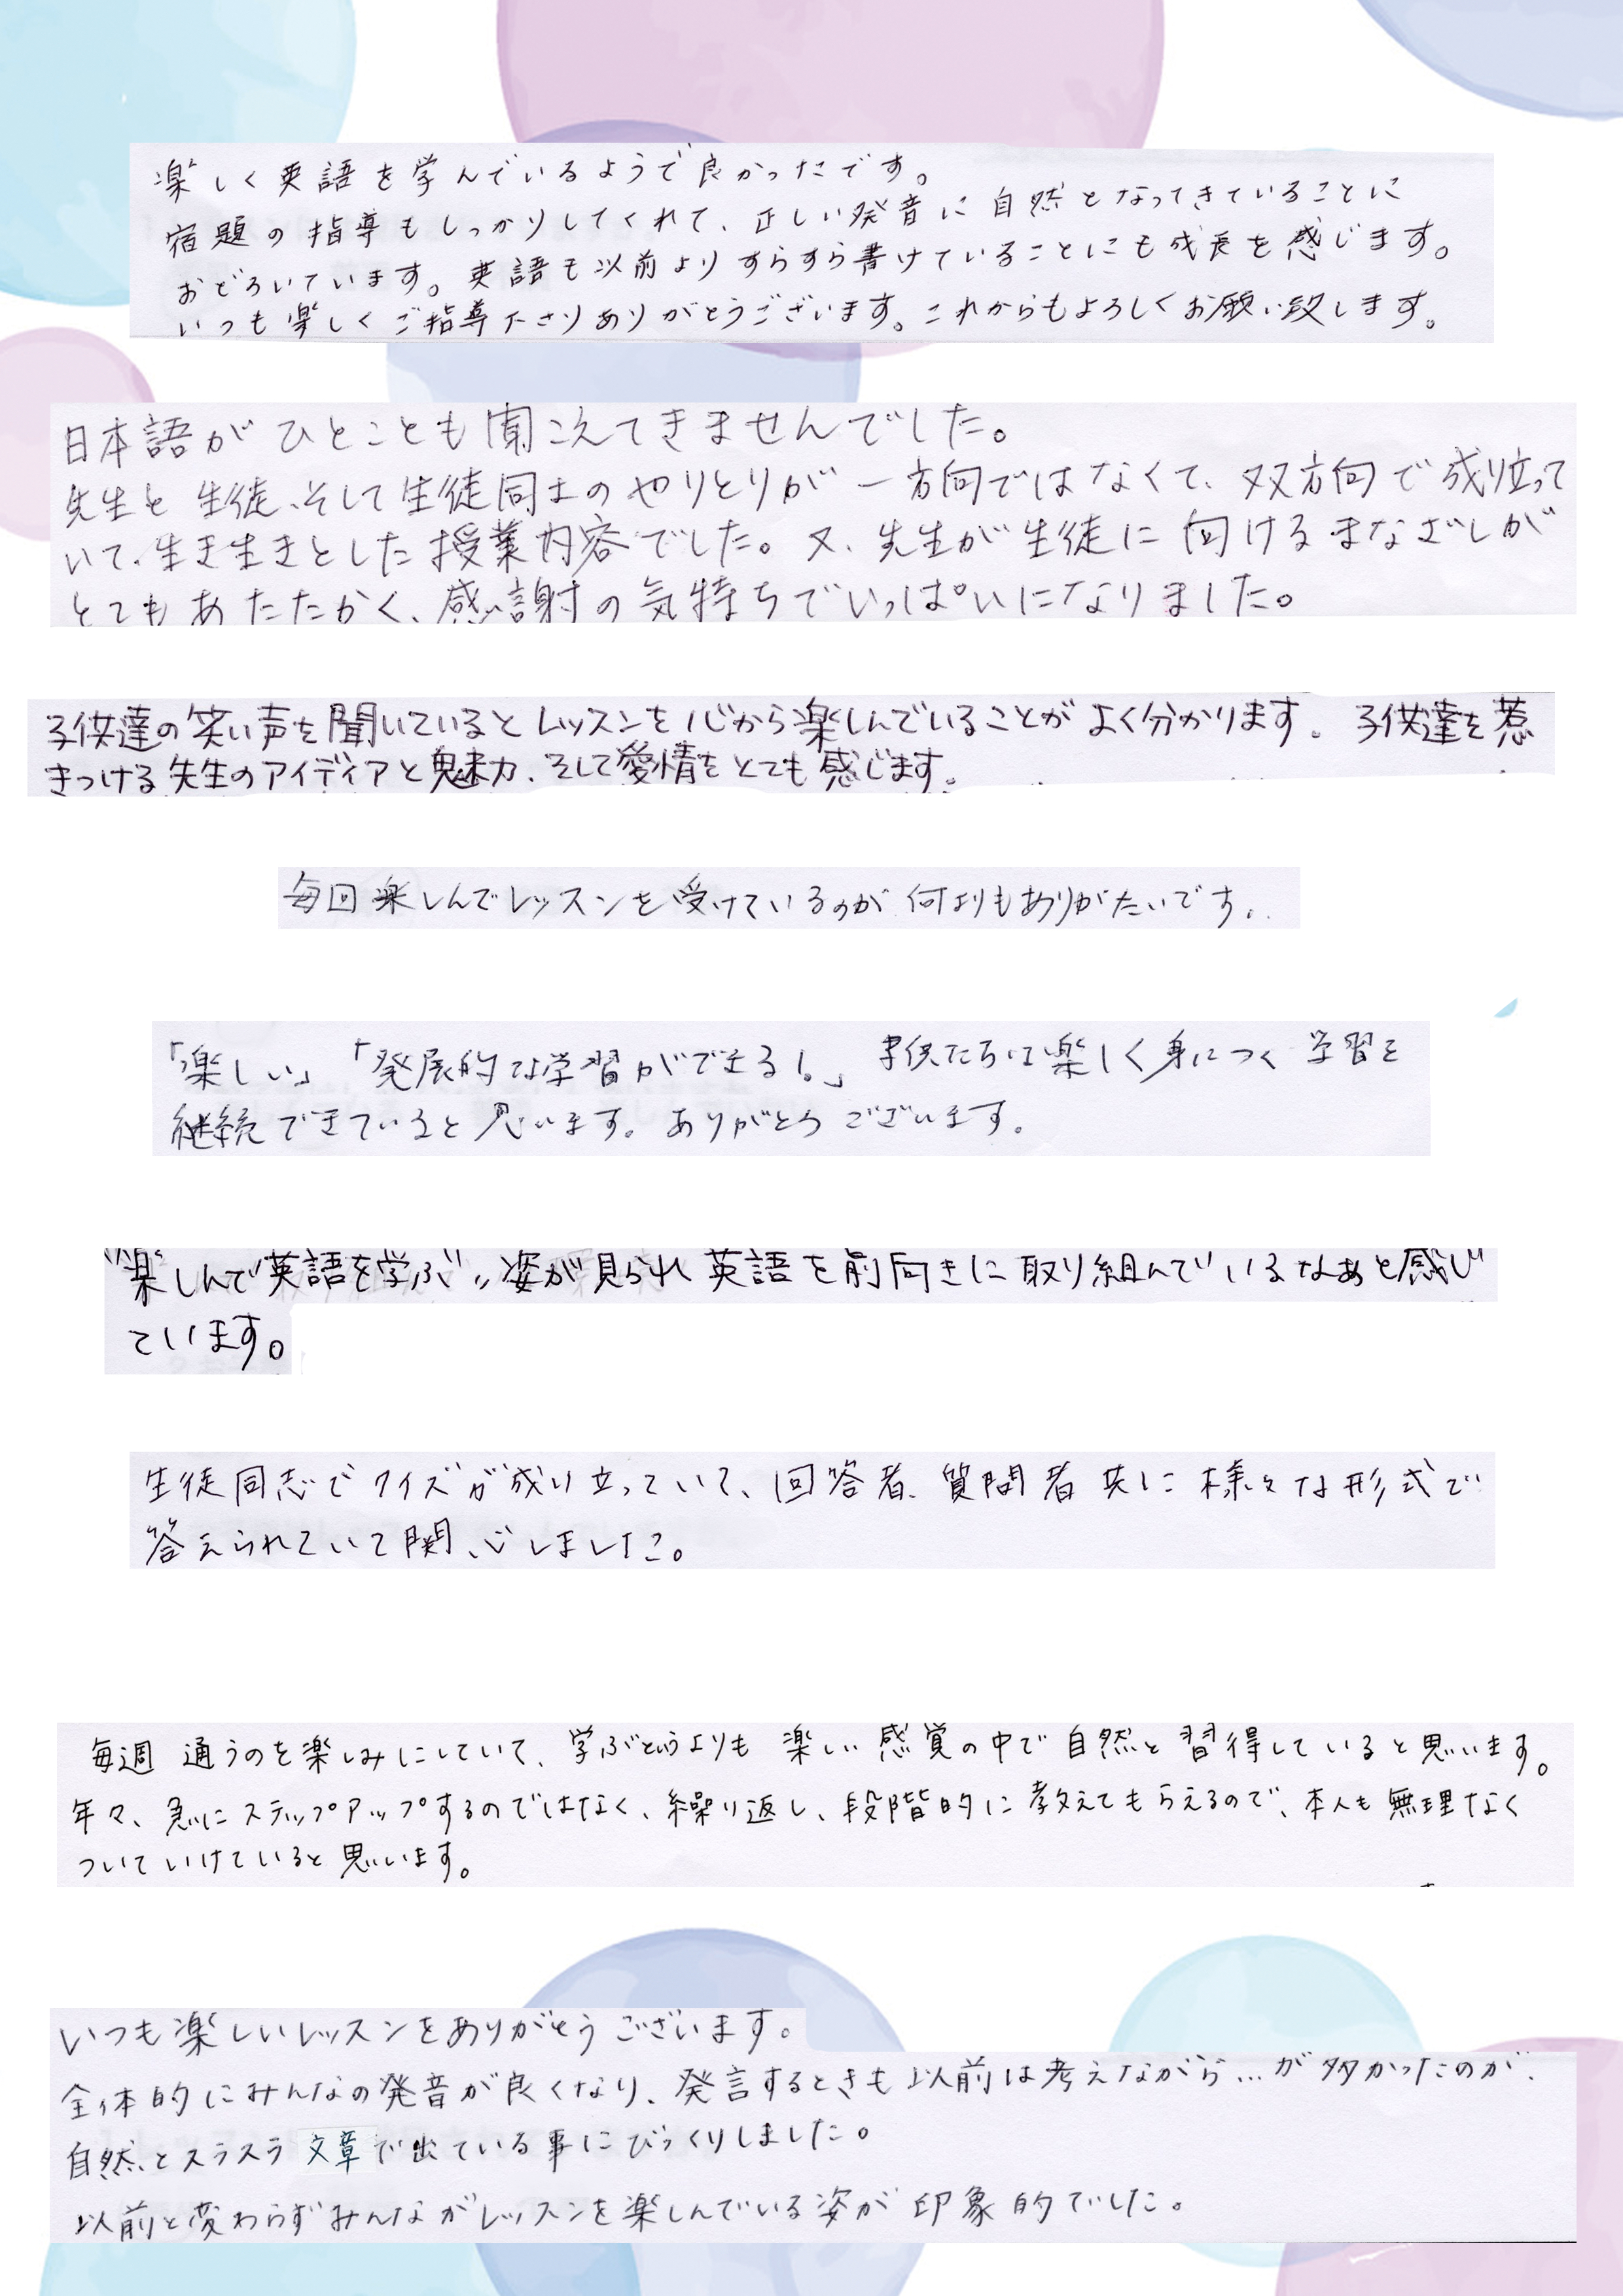 楽しく英語を学んでいるようで良かったです。
宿題の指導もしっかりしてくれて、正しい発音に自然となってきていることに
おどろいています。英語も以前よりすらすら書けていることにも成長を感じます。
いつも楽しくご指導下さりありがとうございます。これからもよろしくお願い致します。
日本語がひとことも聞こえてきませんでした。
先生と生徒、そして生徒同士のやりとりが一方向ではなくて、双方向で成り立って
いて、生き生きとした授業内容でした。又、先生が生徒に向けるまなざしが
とてもあたたかく、感謝の気持ちでいっぱいになりました。
子供達の笑い声を聞いているとレッスンを心から楽しんでいることがよく分かります。子供達を惹
きつける先生のアイディアと魅力、そして愛情をとても感じます。
毎回楽しんでレッスンを受けているのが何よりもありがたいです。
「楽しい」「発展的な学習ができる!。」子供たちは楽しく身につく学習を
継続できていると思います。ありがとうございます。
"楽しんで英語を学ぶ"姿が見られ英語を前向きに取り組んでいるなぁと感じ
ています。
生徒同志でクイズが成り立っていて、回答者、質問者共に様々な形式で
答えられていて関心しました。
毎週通うのを楽しみにしていて、学ぶというよりも楽しい感覚の中で自然と習得していると思います。
年々、急にステップアップするのではなく、繰り返し、段階的に教えてもらえるので、本人も無理なく
ついていけていると思います。
いつも楽しいレッスンをありがとうございます。
全体的にみんなの発音が良くなり、発言するときも以前は考えながら…が多かったのが、
自然とスラスラ文章で出ている事にびっくりしました。
以前と変わらずみんながレッスンを楽しんでいる姿が印象的でした。